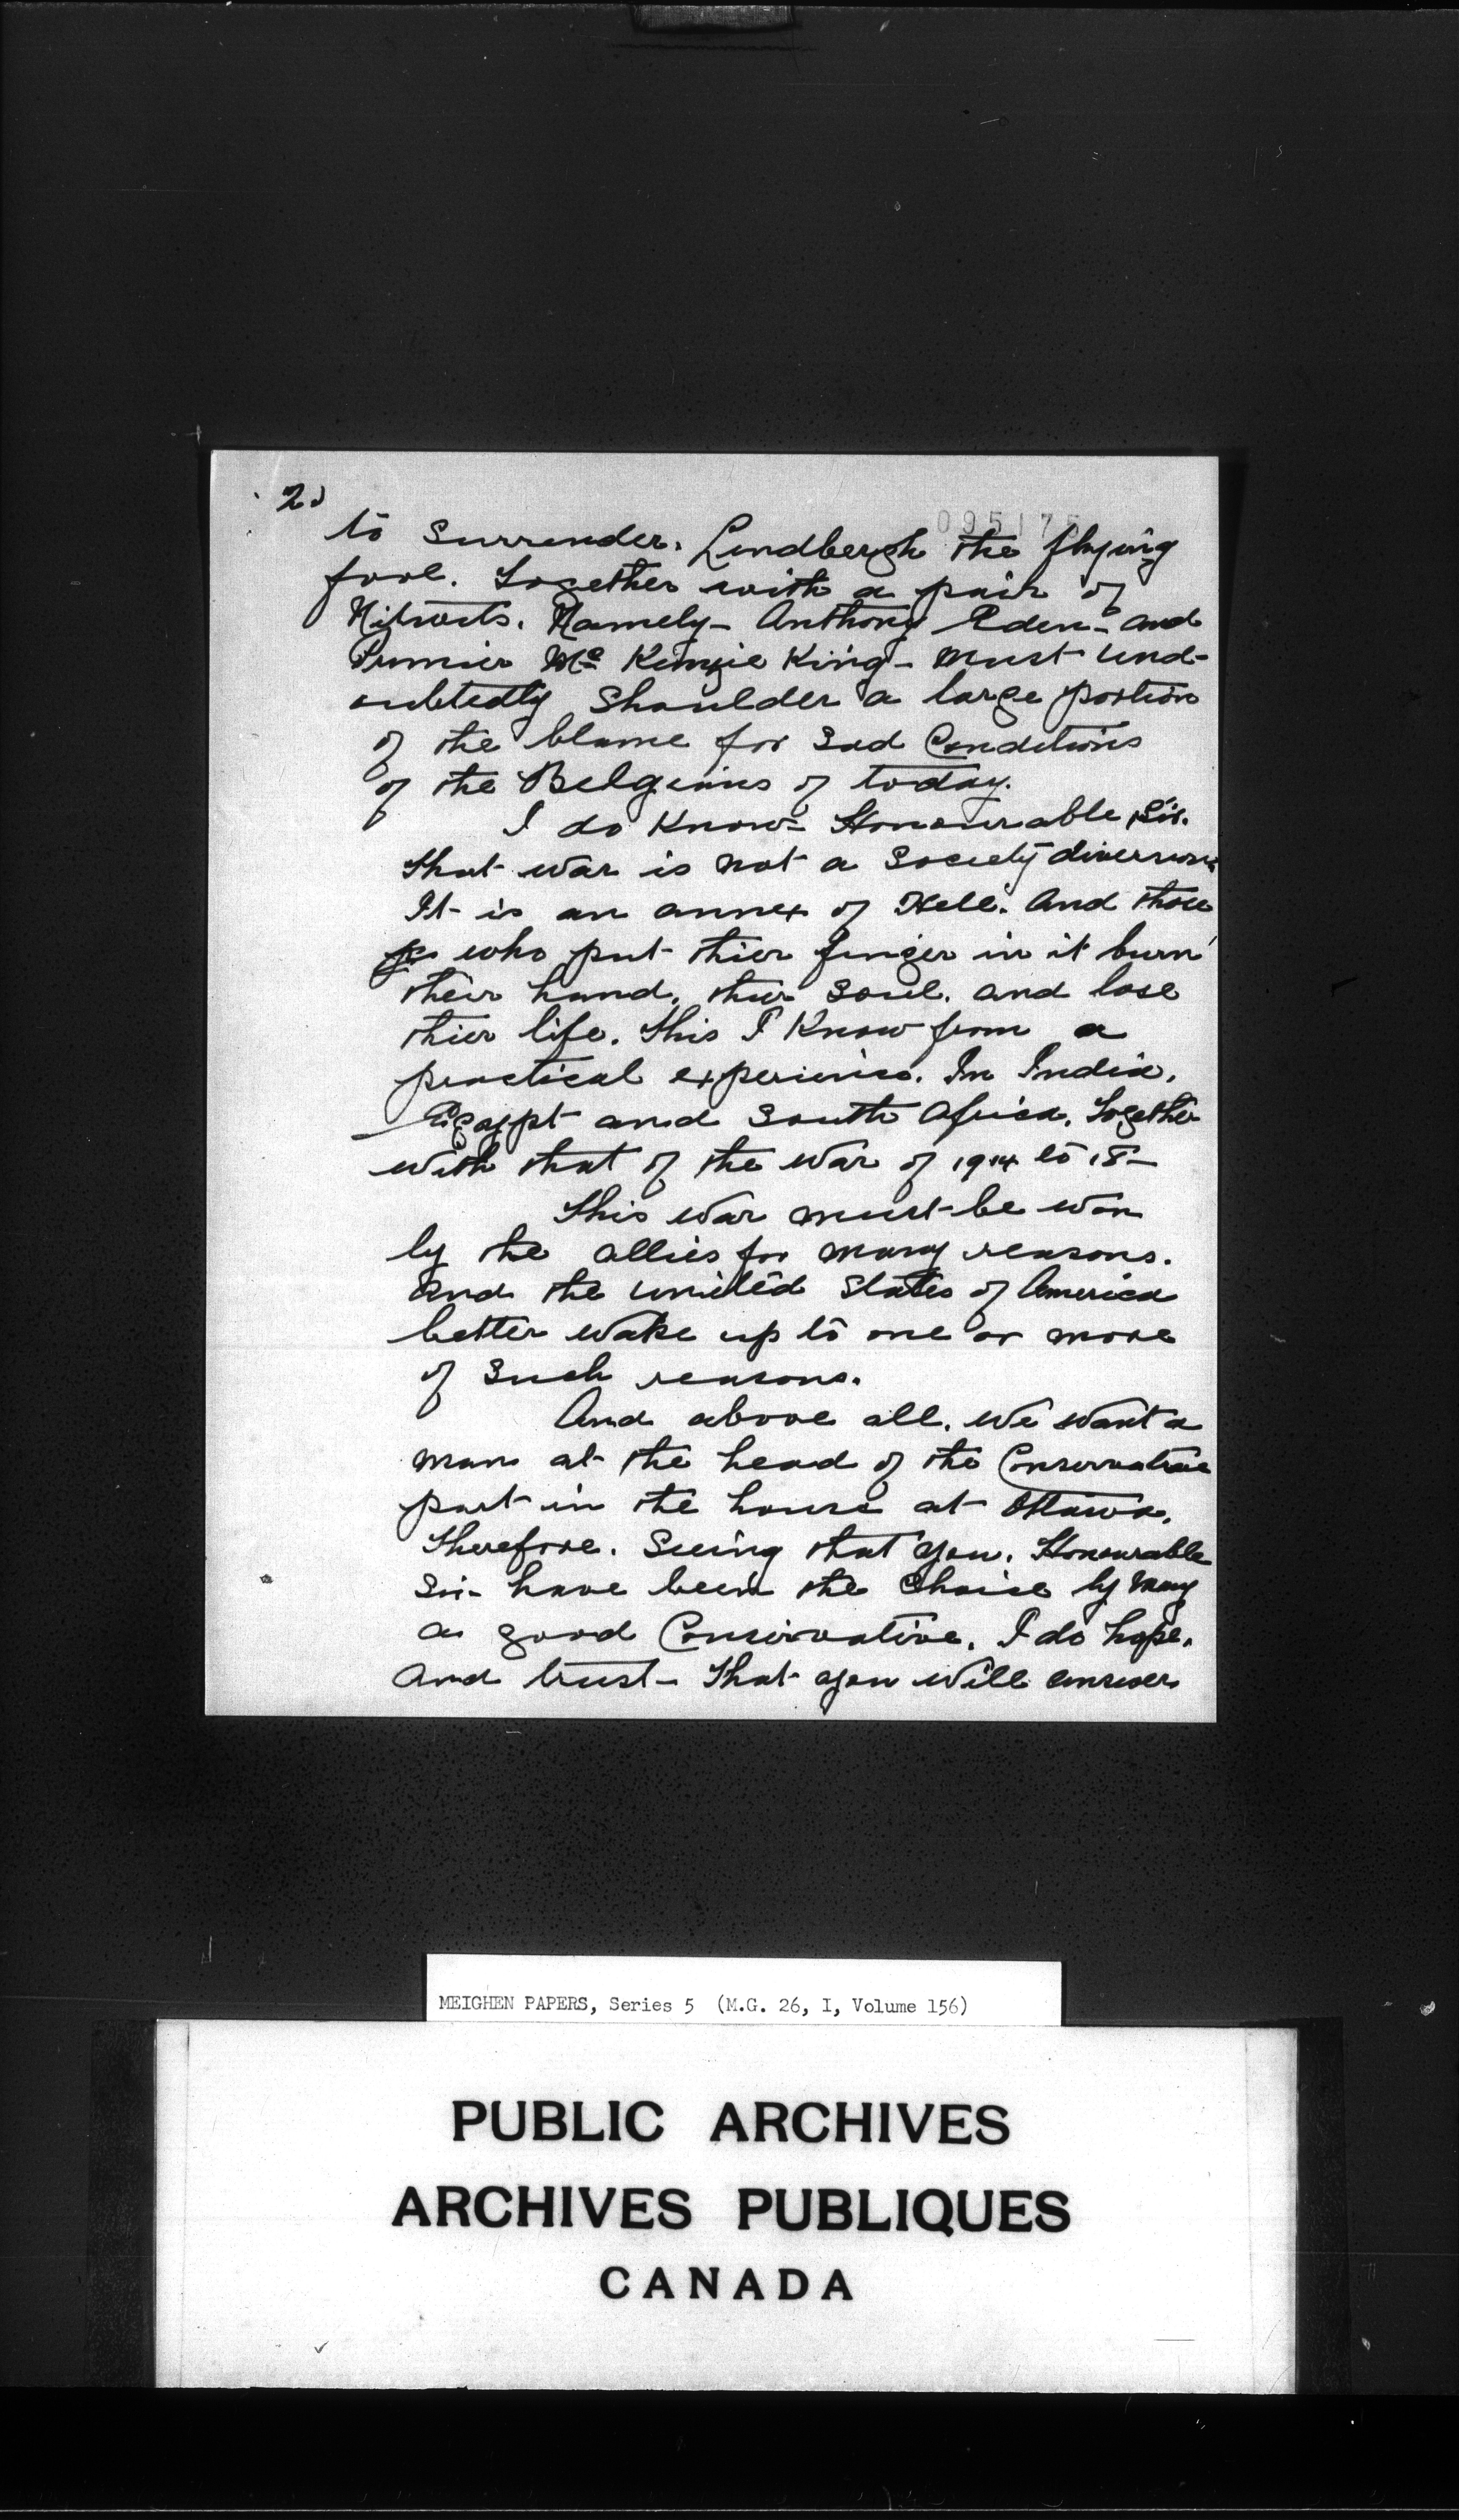 2)
095175
to surrender. Lindbergh the flying
fool. Together with a pair of
Nitwits. Namely - Anthony Eden - and
Premier Mc Kenzie King - must und-
oubtedly shoulder a large portion
of the blame for sad Conditions
of the Belgians of today.
I do know - Honourable Sir.
that war is not a Society diversion.
It is an annex of Hell. And those
who put thier finger in it burn
their hand, thier soul. and lose
thier life. This I Know from a
practical experience. In India,
Egypt and South Africa. Together
with that of the war of 1914 to 18 -
This war must be won
by the allies for many reasons.
And the united States of America
better wake up to one or more
of such reasons.
And above all. We want a
man at the head of the Conservative
part in the house at Ottawa.
Therefore. Seeing that you. Honourable
Sir - have been the choice by many
a good Conservative. I do hope.
and trust - that you will answer
MEIGHEN PAPERS, Series 5 (M.G. 26, I, Volume 156)
PUBLIC ARCHIVES
ARCHIVES PUBLIQUES
CANADA